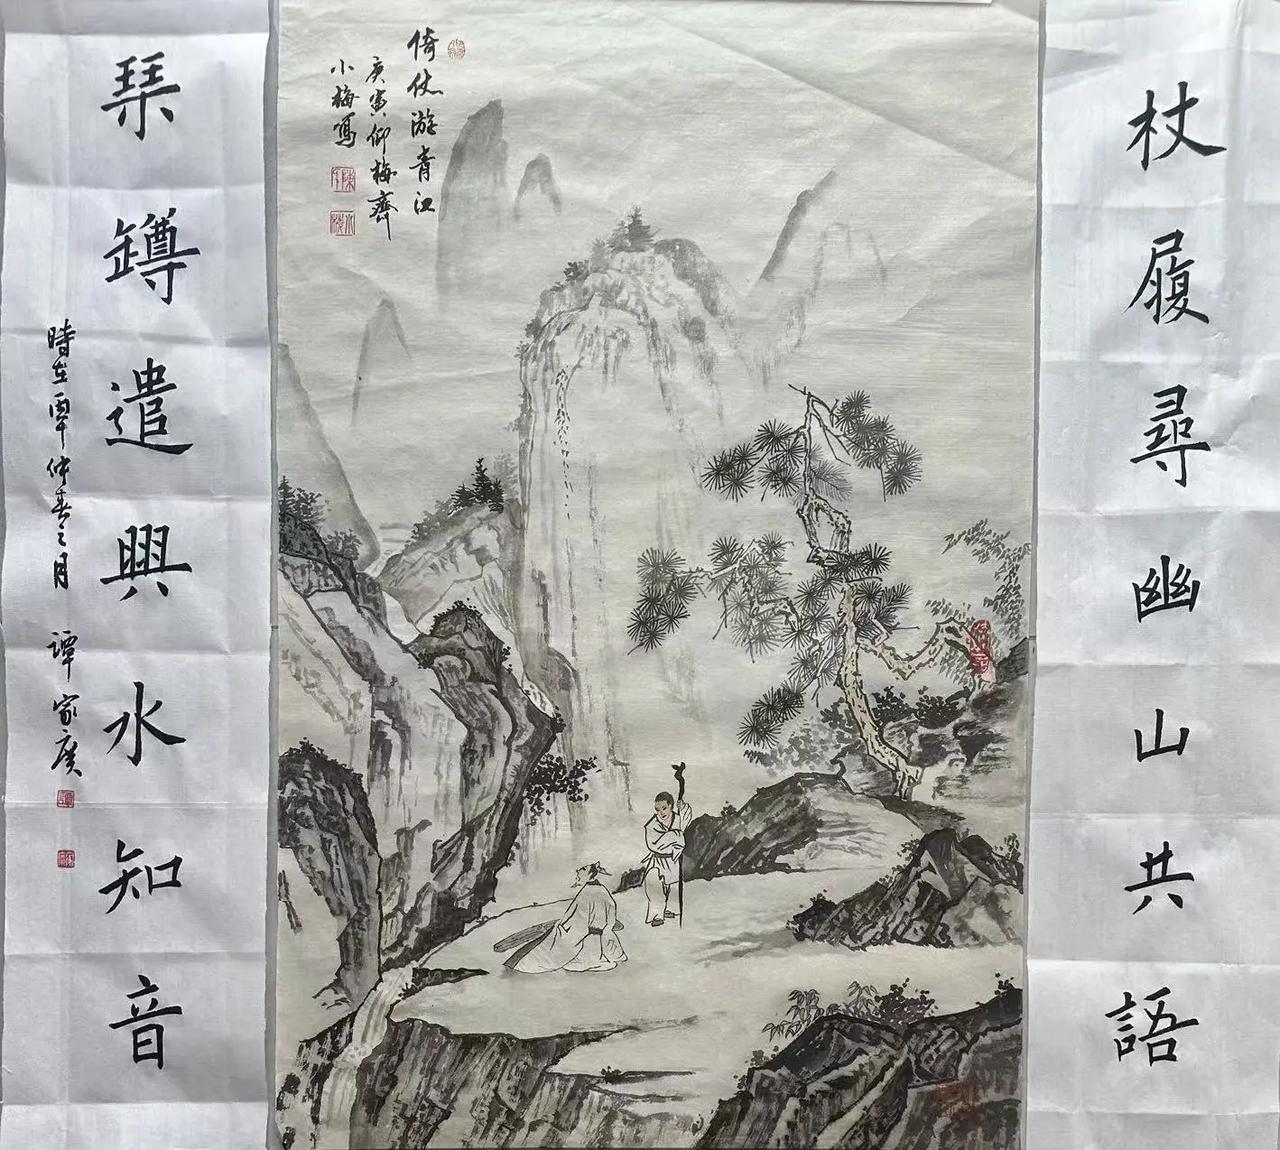 杖履尋幽山共語
倚仗游青江
庚寅仰梅齋
小梅寫
琹罇遣興水知音
時在仲春之月 譚家廣